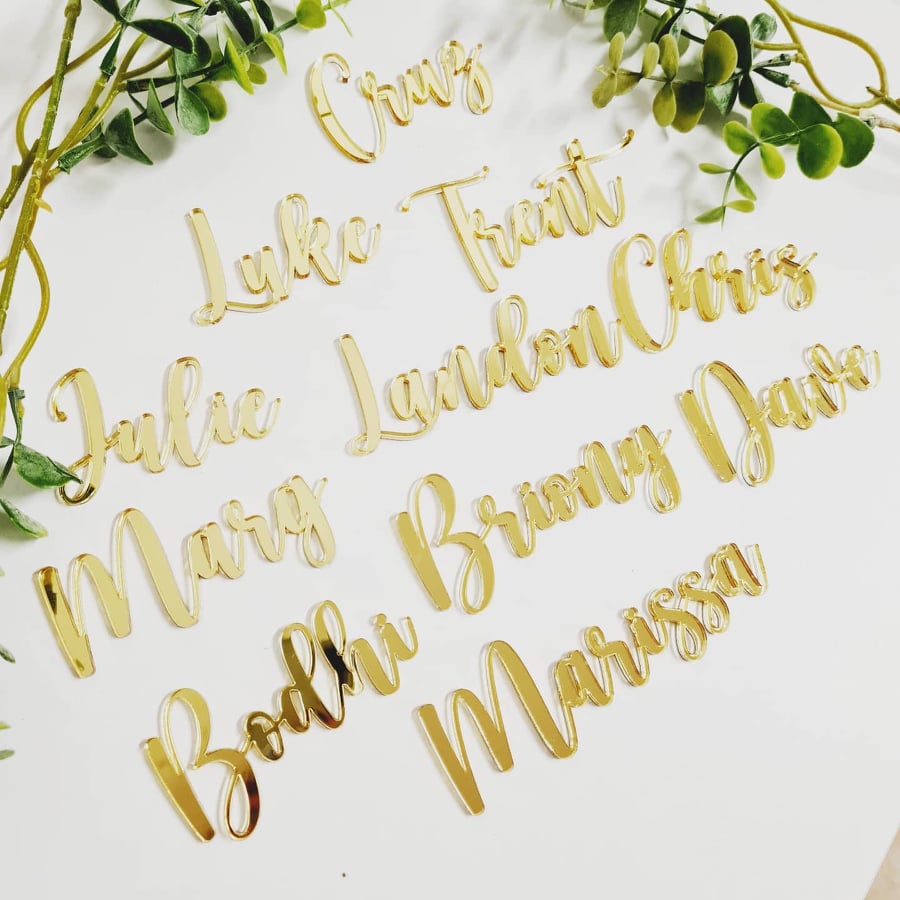 Cruz
Luke Trent
Julie Landon Chris
Mary Briony Dave
Bodhi Marissa